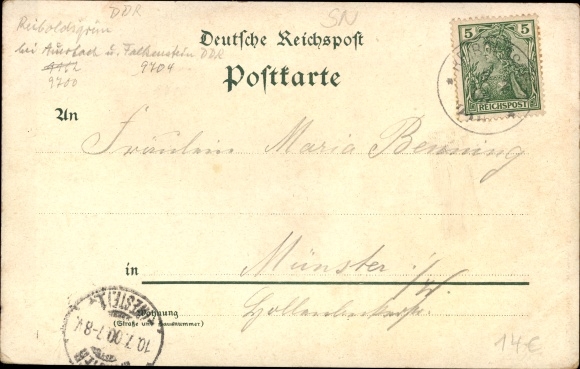 DDR
SN
Reiboldsgrün
bei Auerbach u. Falkenstein DDR
9704
9700
Deutsche Reichspost
Postkarte
5 5
REICHSPOST
An
Fräulein Maria Benning
in Münster i/W.
Wohnung
(Straße und Hausnummer)
10.7.00.7-8
14€